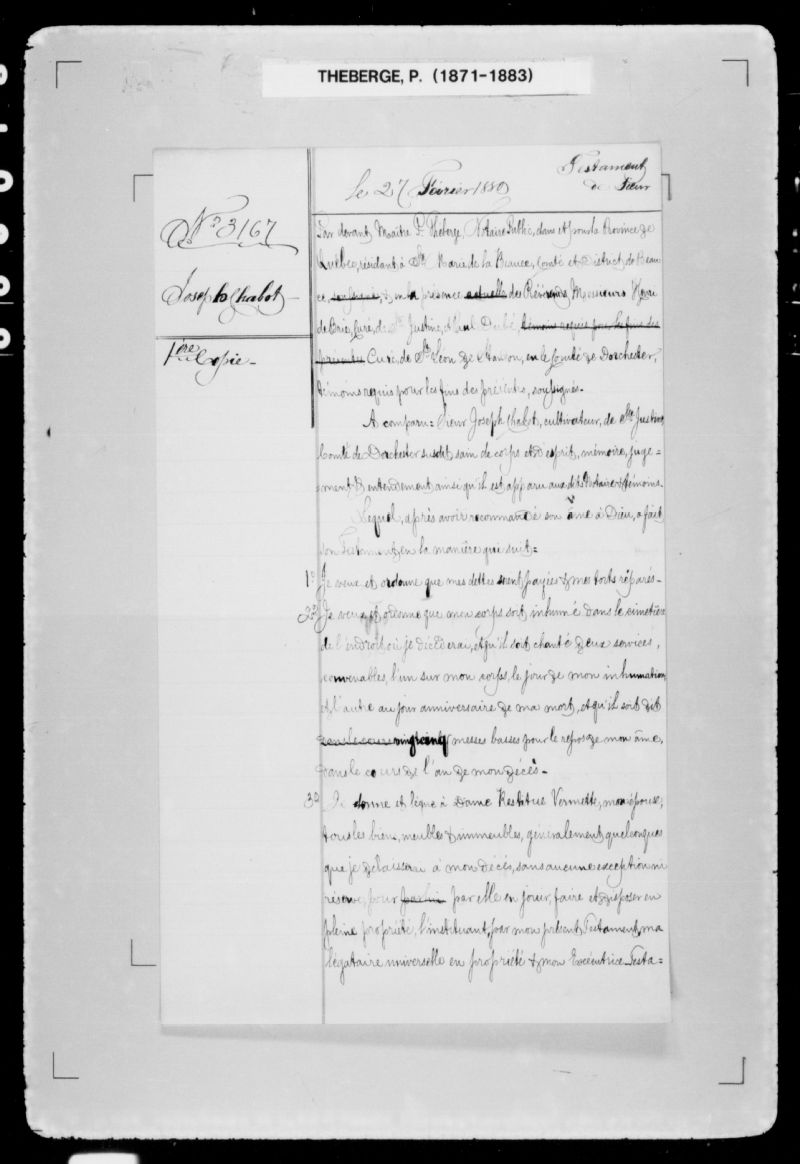 THEBERGE, P. (1871-1883)
Le 27 Février 1880
Testament
de Sieur
No 3167
Joseph Chabot
1ère Copie
Par devant Maître P. Theberge, Notaire Public, dans et pour la Province de
Québec, résidant à Ste Marie de la Beauce, Comté et District de Beau
ce, soussigné, & en la présence actuelle des Révérends Messieurs
de Brie, Curé, de Ste Justine, et Dubé, témoins requis pour les fins des
présentes Curé, de St Léon de Standon, en le Comté de Dorchester,
témoins requis pour les fins des présentes, soussignés.
A comparu: Sieur Joseph Chabot, cultivateur, de Ste Justine,
Comté de Dorchester susdit sain de corps et d'esprit, mémoire, juge=
ment & entendement ainsi qu'il est apparu aux dits Notaire & témoins.
Lequel, après avoir recommandé son âme à Dieu, a fait
son Testament, en la manière qui suit:
1o Je veux et ordonne que mes dettes soient payées & mes torts réparés-
2o Je veux et ordonne que mon corps soit inhumé dans le cimetière
de l'endroit où je décèderai, et qu'il soit chanté deux services,
convenables, l'un sur mon corps, le jour de mon inhumation,
et l'autre au jour anniversaire de ma mort, et qu'il soit dit
dans le cours vingtcinq messes basses pour le repos de mon âme,
dans le cours de l'an de mon décès-
3o Je donne et lègue à Dame Restitue Vermette, mon épouse,
tous les biens, meubles & immeubles, généralement quelconques
que je délaisserai à mon décès, sans aucune exception ni
réserve, pour par elle en jouir, faire et disposer en
pleine propriété, l'instituant, par mon présent Testament, ma
légataire universelle en propriété & mon Exécutrice Testa=